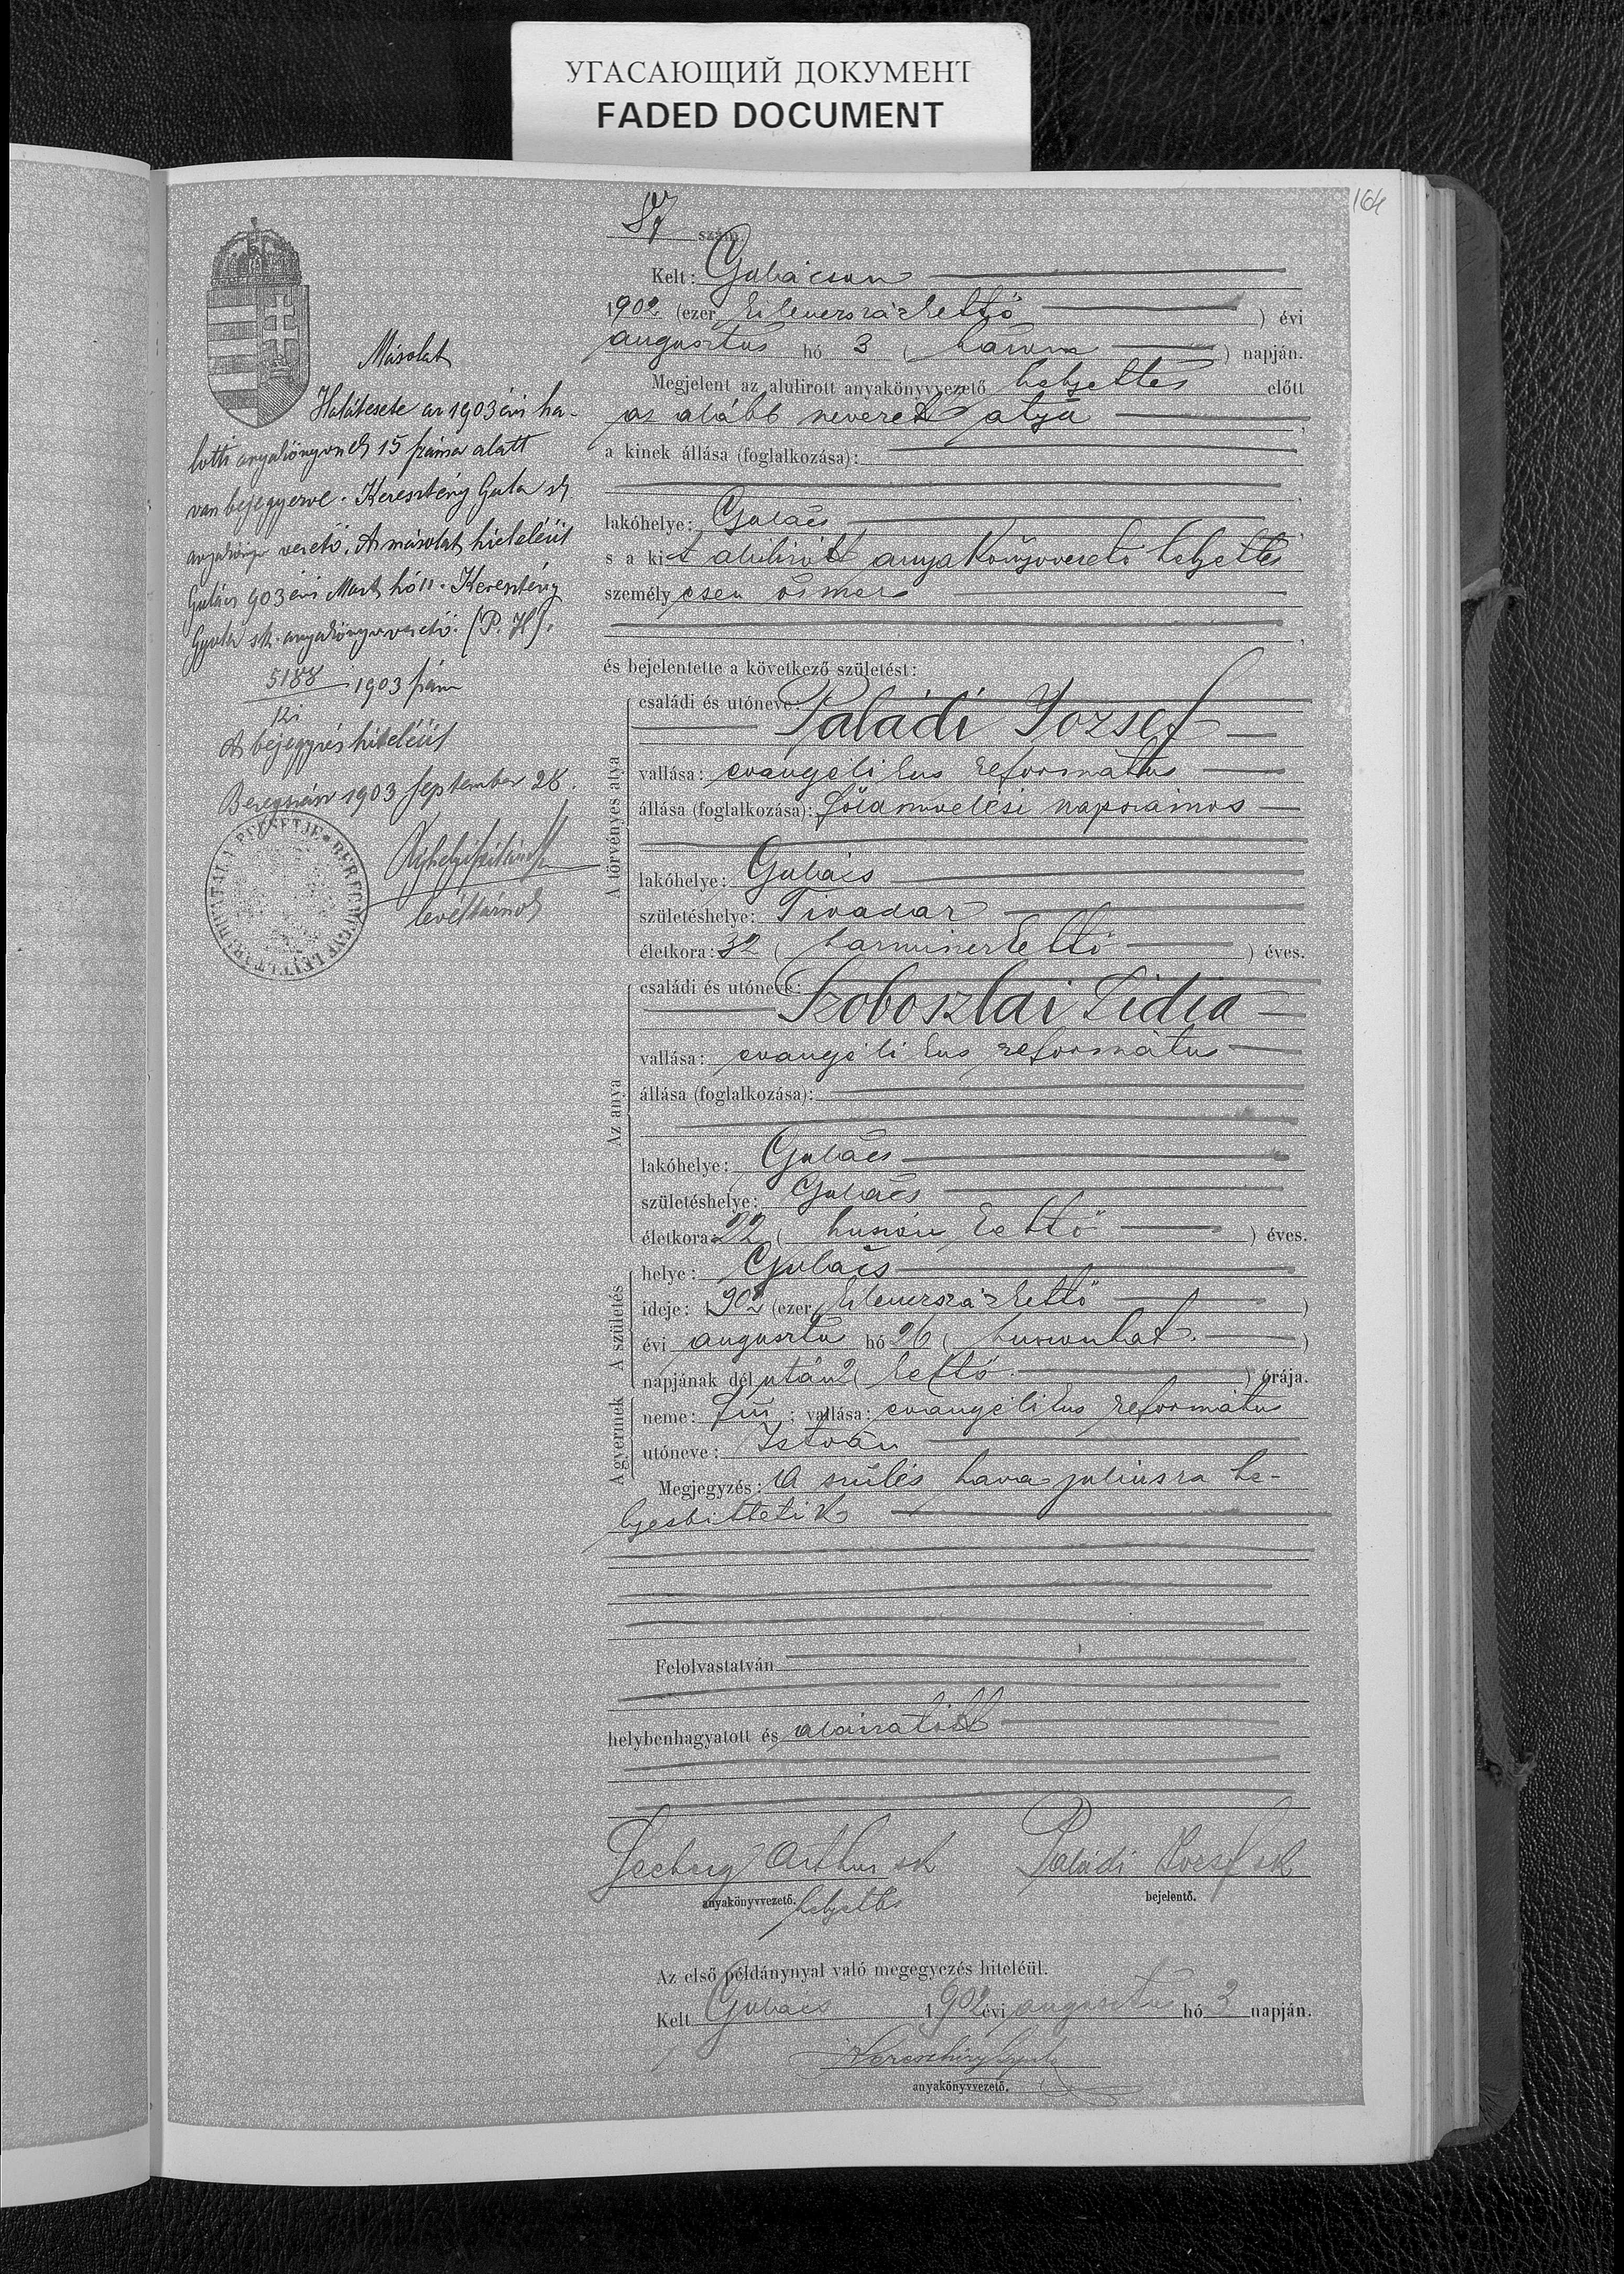 УГАСАЮЩИЙ ДОКУМЕНТ
FADED DOCUMENT
164
87 szám.
Kelt: Gulácson
1902. (ezer kilenczszázkettő) évi
augusztus hó 3 (három) napján.
Megjelent az alulirott anyakönyvvezető helyettes előtt
az alább nevezett atya,
a kinek állása (foglalkozása):
lakóhelye: Gulács,
s a kit alulirott anyakönyvvezető helyettes
személyesen ösmer
és bejelentette a következő születést:
A törvényes atya
családi és utóneve:
Paládi József
vallása: evangélikus református
állása (foglalkozása): földmivelési napszámos
lakóhelye: Gulács
születéshelye: Tivadar
életkora: 32 (harminczkettő) éves.
Az anya
családi és utóneve:
Szoboszlai Lidia
vallása: evangélikus református
állása (foglalkozása):
lakóhelye: Gulács
születéshelye: Gulács
életkora: 22 (huszonkettő) éves.
A születés
helye: Gulács
ideje: 1902 (ezer kilenczszázkettő)
évi augusztus hó 26 (huszonhat.)
napjának dél után 2 (kettő) órája.
A gyermek
neme: fiú; vallása: evangélikus református
utóneve: István
Megjegyzés: A szülés hava juliusra he-
lyesbittetik
Felolvastatván
helybenhagyatott és aláiratott
Seeberg Arthur sk
Paládi József sk
anyakönyvvezető. helyettes
bejelentő.
Az első példánynyal való megegyezés hiteléül.
Kelt Gulács 1902 évi augusztus hó 3 napján.
Keresztény Gyula
anyakönyvvezető.
Másolat
Halálesete az 1903 évi ha-
lotti anyakönyvnek 15 száma alatt
van bejegyezve. Keresztény Gyula sk
anyakönyvvezető. A másolat hiteléül
Gulács 903 évi Márt hó 11. Keresztény
Gyula sk. anyakönyvvezető. (P. H).
5188
1903 szám
ki
A bejegyzés hiteléül
Beregszász 1903 September 28.
levéltárnok